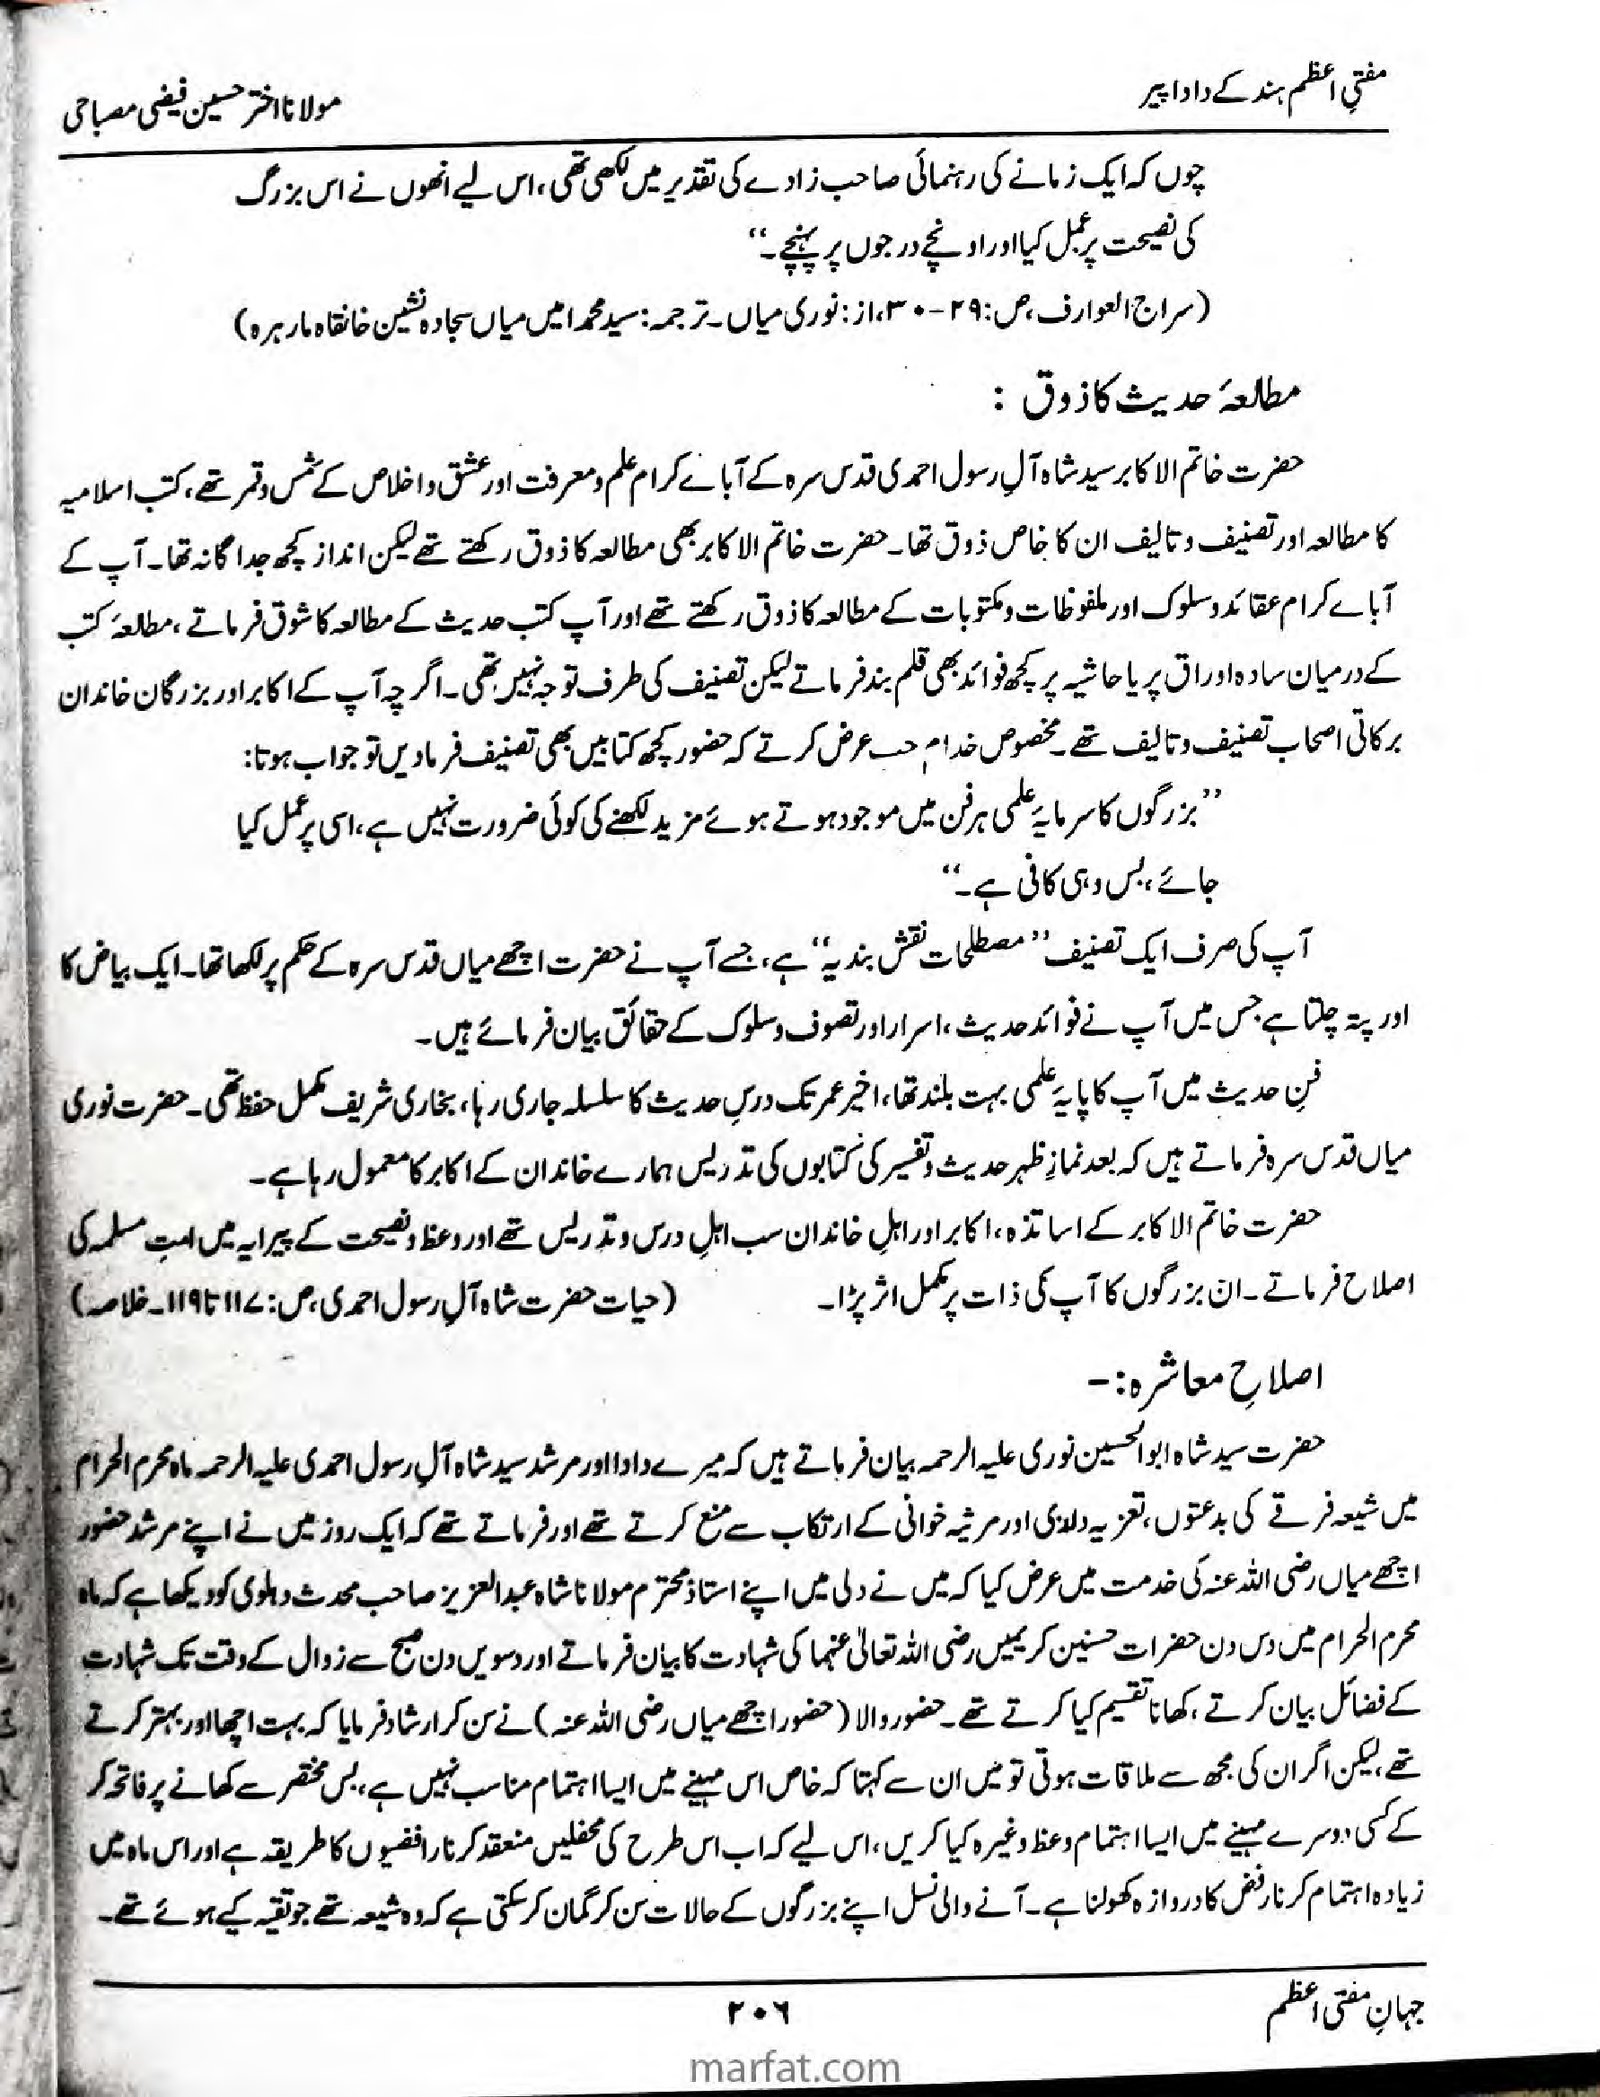 مفتیِ اعظم ہند کے دادا پیر
مولانا اختر حسین فیضی مصباحی
چوں کہ ایک زمانے کی رہنمائی صاحب زادے کی تقدیر میں لکھی تھی، اس لیے انھوں نے اس بزرگ
کی نصیحت پر عمل کیا اور اونچے درجوں پر پہنچے۔“
(سراج العوارف، ص: ۲۹-۳۰، از: نوری میاں۔ ترجمہ: سید محمد امیں میاں سجادہ نشین خانقاہ مارہرہ)
مطالعۂ حدیث کا ذوق :
حضرت خاتم الاکابر سید شاہ آلِ رسول احمدی قدس سرہ کے آباے کرام علم و معرفت اور عشق و اخلاص کے شمس و قمر تھے، کتب اسلامیہ
کا مطالعہ اور تصنیف و تالیف ان کا خاص ذوق تھا۔ حضرت خاتم الاکابر بھی مطالعہ کا ذوق رکھتے تھے لیکن انداز کچھ جداگانہ تھا۔ آپ کے
آباے کرام عقائد و سلوک اور ملفوظات و مکتوبات کے مطالعہ کا ذوق رکھتے تھے اور آپ کتب حدیث کے مطالعہ کا شوق فرماتے، مطالعۂ کتب
کے درمیان سادہ اوراق پر یا حاشیہ پر کچھ فوائد بھی قلم بند فرماتے لیکن تصنیف کی طرف توجہ نہیں تھی۔ اگرچہ آپ کے اکابر اور بزرگان خاندان
برکاتی اصحاب تصنیف و تالیف تھے۔ مخصوص خدام جب عرض کرتے کہ حضور کچھ کتابیں بھی تصنیف فرمادیں تو جواب ہوتا:
”بزرگوں کا سرمایۂ علمی ہر فن میں موجود ہوتے ہوئے مزید لکھنے کی کوئی ضرورت نہیں ہے، اسی پر عمل کیا
جائے، بس وہی کافی ہے۔“
آپ کی صرف ایک تصنیف ”مصطلحات نقش بندیہ“ ہے، جسے آپ نے حضرت اچھے میاں قدس سرہ کے حکم پر لکھا تھا۔ ایک بیاض کا
اور پتہ چلتا ہے جس میں آپ نے فوائد حدیث، اسرار اور تصوف و سلوک کے حقائق بیان فرمائے ہیں۔
فنِ حدیث میں آپ کا پایۂ علمی بہت بلند تھا، اخیر عمر تک درسِ حدیث کا سلسلہ جاری رہا، بخاری شریف مکمل حفظ تھی۔ حضرت نوری
میاں قدس سرہ فرماتے ہیں کہ بعد نمازِ ظہر حدیث و تفسیر کی کتابوں کی تدریس ہمارے خاندان کے اکابر کا معمول رہا ہے۔
حضرت خاتم الاکابر کے اساتذہ، اکابر اور اہلِ خاندان سب اہلِ درس و تدریس تھے اور وعظ و نصیحت کے پیرایہ میں امتِ مسلمہ کی
اصلاح فرماتے۔ ان بزرگوں کا آپ کی ذات پر مکمل اثر پڑا۔ (حیات حضرت شاہ آلِ رسول احمدی، ص: ۱۱۷ تا ۱۱۹۔ خلاصہ)
اصلاحِ معاشرہ:-
حضرت سید شاہ ابوالحسین نوری علیہ الرحمہ بیان فرماتے ہیں کہ میرے دادا اور مرشد سید شاہ آلِ رسول احمدی علیہ الرحمہ ماہ محرم الحرام
میں شیعہ فرقے کی بدعتوں، تعزیہ داری اور مرثیہ خوانی کے ارتکاب سے منع کرتے تھے اور فرماتے تھے کہ ایک روز میں نے اپنے مرشد حضور
اچھے میاں رضی اللہ عنہ کی خدمت میں عرض کیا کہ میں نے دلی میں اپنے استاذ محترم مولانا شاہ عبدالعزیز صاحب محدث دہلوی کو دیکھا ہے کہ ماہ
محرم الحرام میں دس دن حضرات حسنین کریمین رضی اللہ تعالیٰ عنہما کی شہادت کا بیان فرماتے اور دسویں دن صبح سے زوال کے وقت تک شہادت
کے فضائل بیان کرتے، کھانا تقسیم کیا کرتے تھے۔ حضور والا (حضور اچھے میاں رضی اللہ عنہ) نے سن کر ارشاد فرمایا کہ بہت اچھا اور بہتر کرتے
تھے، لیکن اگر ان کی مجھ سے ملاقات ہوتی تو میں ان سے کہتا کہ خاص اس مہینے میں ایسا اہتمام مناسب نہیں ہے، بس مختصر سے کھانے پر فاتحہ کر
کے کسی دوسرے مہینے میں ایسا اہتمام وعظ وغیرہ کیا کریں، اس لیے کہ اب اس طرح کی محفلیں منعقد کرنا رافضیوں کا طریقہ ہے اور اس ماہ میں
زیادہ اہتمام کرنا رفض کا دروازہ کھولنا ہے۔ آنے والی نسل اپنے بزرگوں کے حالات سن کر گمان کر سکتی ہے کہ وہ شیعہ تھے جو تقیہ کیے ہوئے تھے۔
جہانِ مفتی اعظم
۲۰۶
marfat.com